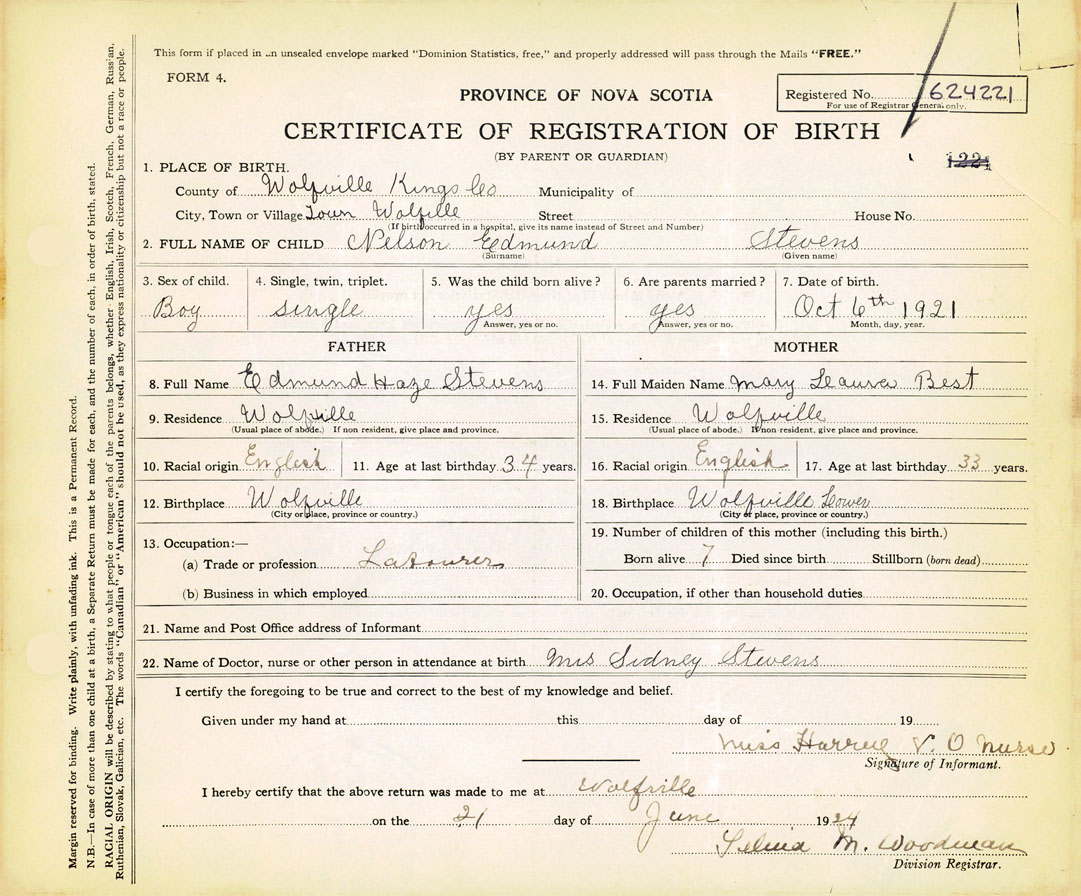 This form if placed in an unsealed envelope marked "Dominion Statistics, free," and properly addressed will pass through the Mails "FREE."
FORM 4.
Registered No. 624221
For use of Registrar General only.
PROVINCE OF NOVA SCOTIA
CERTIFICATE OF REGISTRATION OF BIRTH
(BY PARENT OR GUARDIAN)
1221
1. PLACE OF BIRTH.
County of Wolfville Kings Co Municipality of
City, Town or Village Town Wolfille Street House No.
(If birth occurred in a hospital, give its name instead of Street and Number)
2. FULL NAME OF CHILD Nelson Edmund Stevens
(Surname) (Given name)
3. Sex of child. 4. Single, twin, triplet. 5. Was the child born alive? 6. Are parents married? 7. Date of birth.
Boy single yes yes Oct 6th 1921
Answer, yes or no. Answer, yes or no. Month, day, year.
FATHER MOTHER
8. Full Name Edmund Haze Stevens 14. Full Maiden Name Mary Leaura Best
9. Residence Wolfville 15. Residence Wolfville
(Usual place of abode.) If non resident, give place and province. (Usual place of abode.) If non resident, give place and province.
10. Racial origin English 11. Age at last birthday 34 years. 16. Racial origin English 17. Age at last birthday 33 years.
12. Birthplace Wolfville 18. Birthplace Wolfville Lower
(City or place, province or country.) (City or place, province or country.)
13. Occupation:— 19. Number of children of this mother (including this birth.)
(a) Trade or profession Labourer Born alive 7 Died since birth Stillborn (born dead)
(b) Business in which employed 20. Occupation, if other than household duties
21. Name and Post Office address of Informant
22. Name of Doctor, nurse or other person in attendance at birth Mrs Sidney Stevens
I certify the foregoing to be true and correct to the best of my knowledge and belief.
Given under my hand at this day of 19
Miss V. O Nurse
Signature of Informant.
I hereby certify that the above return was made to me at Wolfville
on the 21 day of June 1924
M. Woodman
Division Registrar.
Margin reserved for binding. Write plainly, with unfading ink. This is a Permanent Record.
N.B.—In case of more than one child at a birth, a Separate Return must be made for each, and the number of each, in order of birth, stated.
RACIAL ORIGIN will be described by stating to what people or tongue each of the parents belongs, whether English, Irish, Scotch, French, German, Russian,
Ruthenian, Slovak, Galician, etc. The words "Canadian" or "American" should not be used, as they express nationality or citizenship but not a race or people.